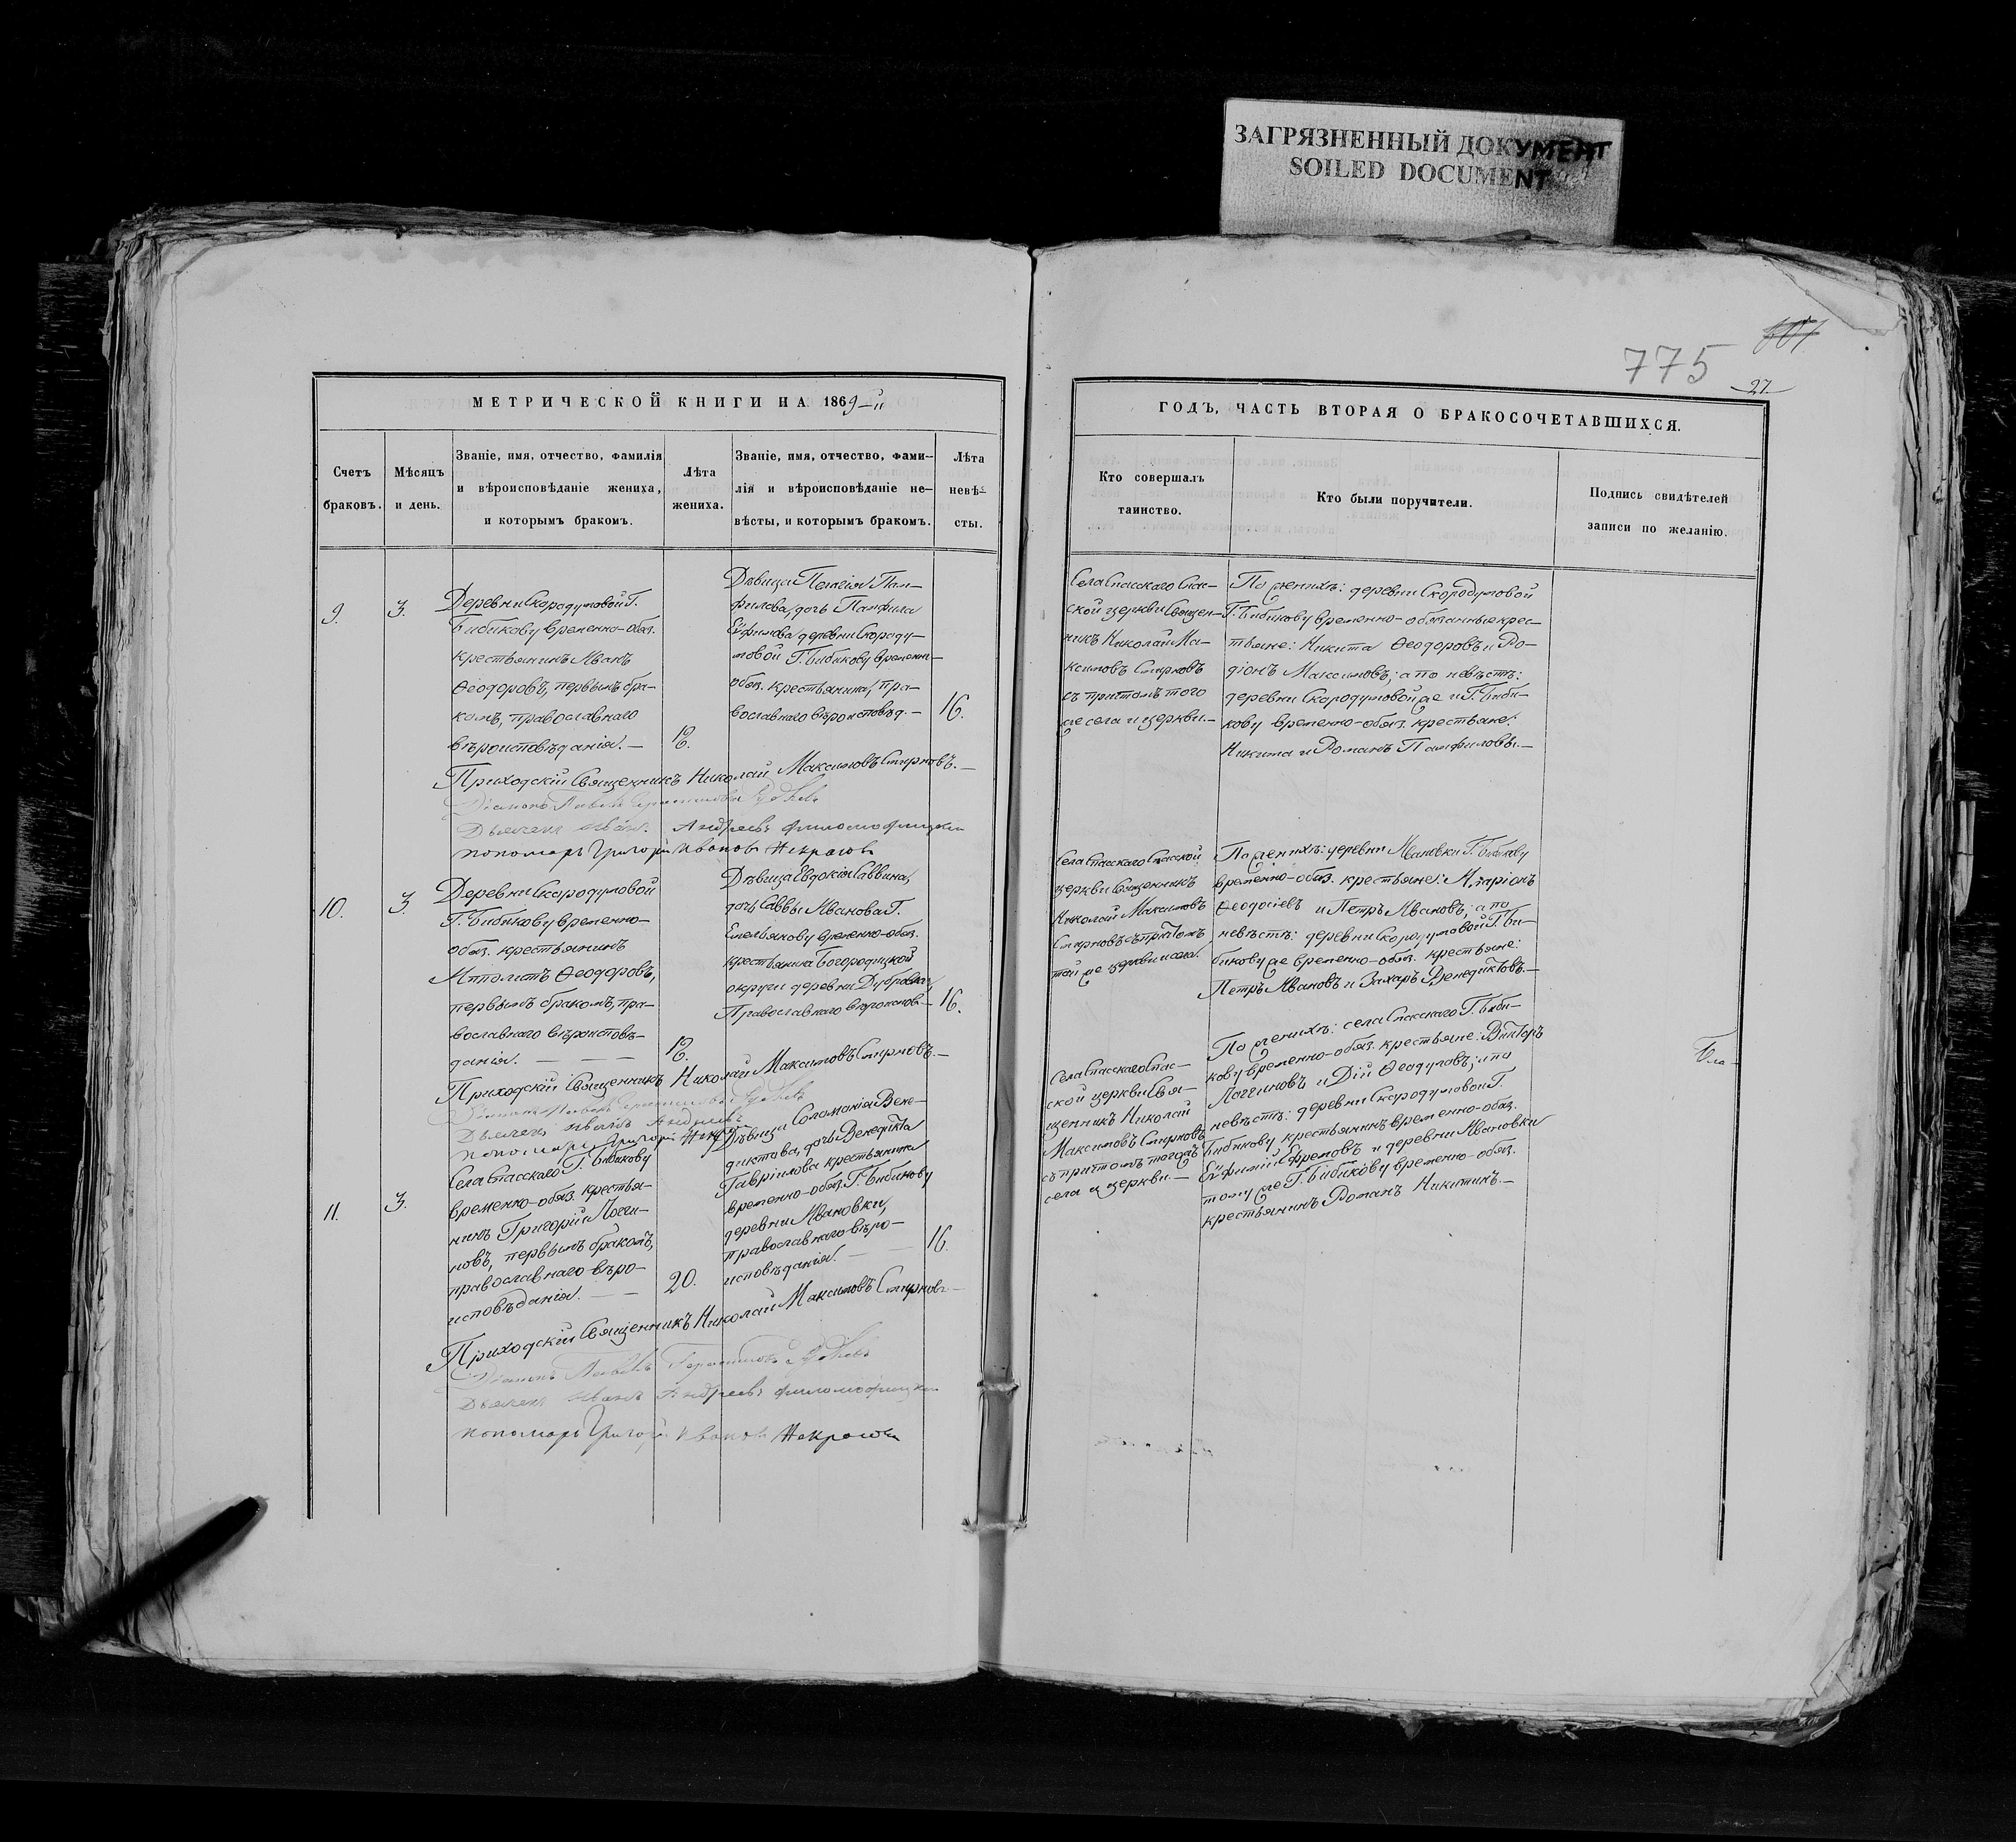 ЗАГРЯЗНЕННЫЙ ДОКУМЕНТ
SOILED DOCUMENT
МЕТРИЧЕСКОЙ КНИГИ НА 1869-й
Счетъ
браковъ.
Мѣсяцъ
и день.
Званіе, имя, отчество, фамилія
и вѣроисповѣданіе жениха,
и которымъ бракомъ.
Лѣта
жениха.
Званіе, имя, отчество, фами-
лія и вѣроисповѣданіе не-
вѣсты, и которымъ бракомъ.
Лѣта
невѣ-
сты.
9.
3.
Деревни Скородумовой Г.
Бибикову временно-обяз.
крестьянинъ Иванъ
Ѳеодоровъ, первымъ бра-
комъ, православнаго
вѣроисповѣданія. —
18.
Дѣвица Пелагія Пам-
филова, дочь Памфила
Ефимова деревни Скороду-
мовой Г. Бибикову временн-
обяз. крестьянина, пра-
вославнаго вѣроисповѣд. —
16.
Приходскій Священникъ Николай Максимовъ Смирновъ. —
Діаконъ Павелъ
Дьячекъ Иванъ Андреевъ
пономарь Григорій Ивановъ Некрасовъ
10.
3.
Деревни Скородумовой
Г. Бибикову временно-
обяз. крестьянинъ
Ипполитъ Ѳеодоровъ,
первымъ бракомъ, пра-
вославнаго вѣроисповѣ-
данія. — — —
18.
Дѣвица Евдокія Саввина,
дочь Саввы Иванова Г.
Емельянову временно-обяз.
крестьянина Богородицкой
округи деревни Дубровки,
Православнаго вѣроиспов. —
16.
Приходскій Священникъ Николай Максимовъ Смирновъ. —
Діаконъ Павелъ
Дьячекъ Иванъ Андреевъ
пономарь Григорій
11.
3.
Села Спасскаго Г. Бибикову
временно-обяз. крестья-
нинъ Григорій Логги-
новъ, первымъ бракомъ,
православнаго вѣро-
исповѣданія. — —
20.
Дѣвица Соломанія Вене-
диктова, дочь Венедикта
Гаврілова крестьянина
временно-обяз. Г. Бибикову
деревни Ивановки,
православнаго вѣро-
исповѣданія. — —
16.
Приходскій Священникъ Николай Максимовъ Смирновъ —
Діаконъ Павелъ
Дьячекъ Иванъ Андреевъ
пономарь Григорій Ивановъ Некрасовъ
775
27
ГОДЪ, ЧАСТЬ ВТОРАЯ О БРАКОСОЧЕТАВШИХСЯ.
Кто совершалъ
таинство.
Кто были поручители.
Подпись свидѣтелей
записи по желанію.
Села Спасскаго Спас-
ской церкви Священ-
никъ Николай Ма-
ксимовъ Смирновъ
съ причтомъ того
же села и церкви. —
По женихѣ: деревни Скородумовой
Г. Бибикову временно-обязанные крес-
тьяне: Никита Ѳеодоровъ и Ро-
діонъ Максимовъ; а по невѣстѣ:
деревни Скородумовой же и Г. Биби-
кову временно-обяз. крестьяне:
Никита и Романъ Памфиловы. —
Села Спасскаго Спасской
церкви Священникъ
Николай Максимовъ
Смирновъ съ причтомъ
той же церкви и села.
По женихѣ: деревни Ивановки Г. Бибикову
временно-обяз. крестьяне: Иларіонъ
Ѳеодосіевъ и Петръ Ивановъ; а по
невѣстѣ: деревни Скородумовой Г. Би-
бикову же временно-обяз. крестьяне:
Петръ Ивановъ и Захаръ Венедиктовъ. —
Села Спасскаго Спас-
ской церкви Свя-
щенникъ Николай
Максимовъ Смирновъ
съ причтомъ того же
села и церкви. —
По женихѣ: села Спасскаго Г. Биби-
кову временно-обяз. крестьяне: Викторъ
Логгиновъ и Дій Ѳеодуловъ; а по
невѣстѣ: деревни Скородумовой Г.
Бибикову крестьянинъ временно-обяз.
Ефимій Ефремовъ и деревни Ивановки
тому же Г. Бибикову временно-обяз.
крестьянинъ Романъ Никитинъ. —